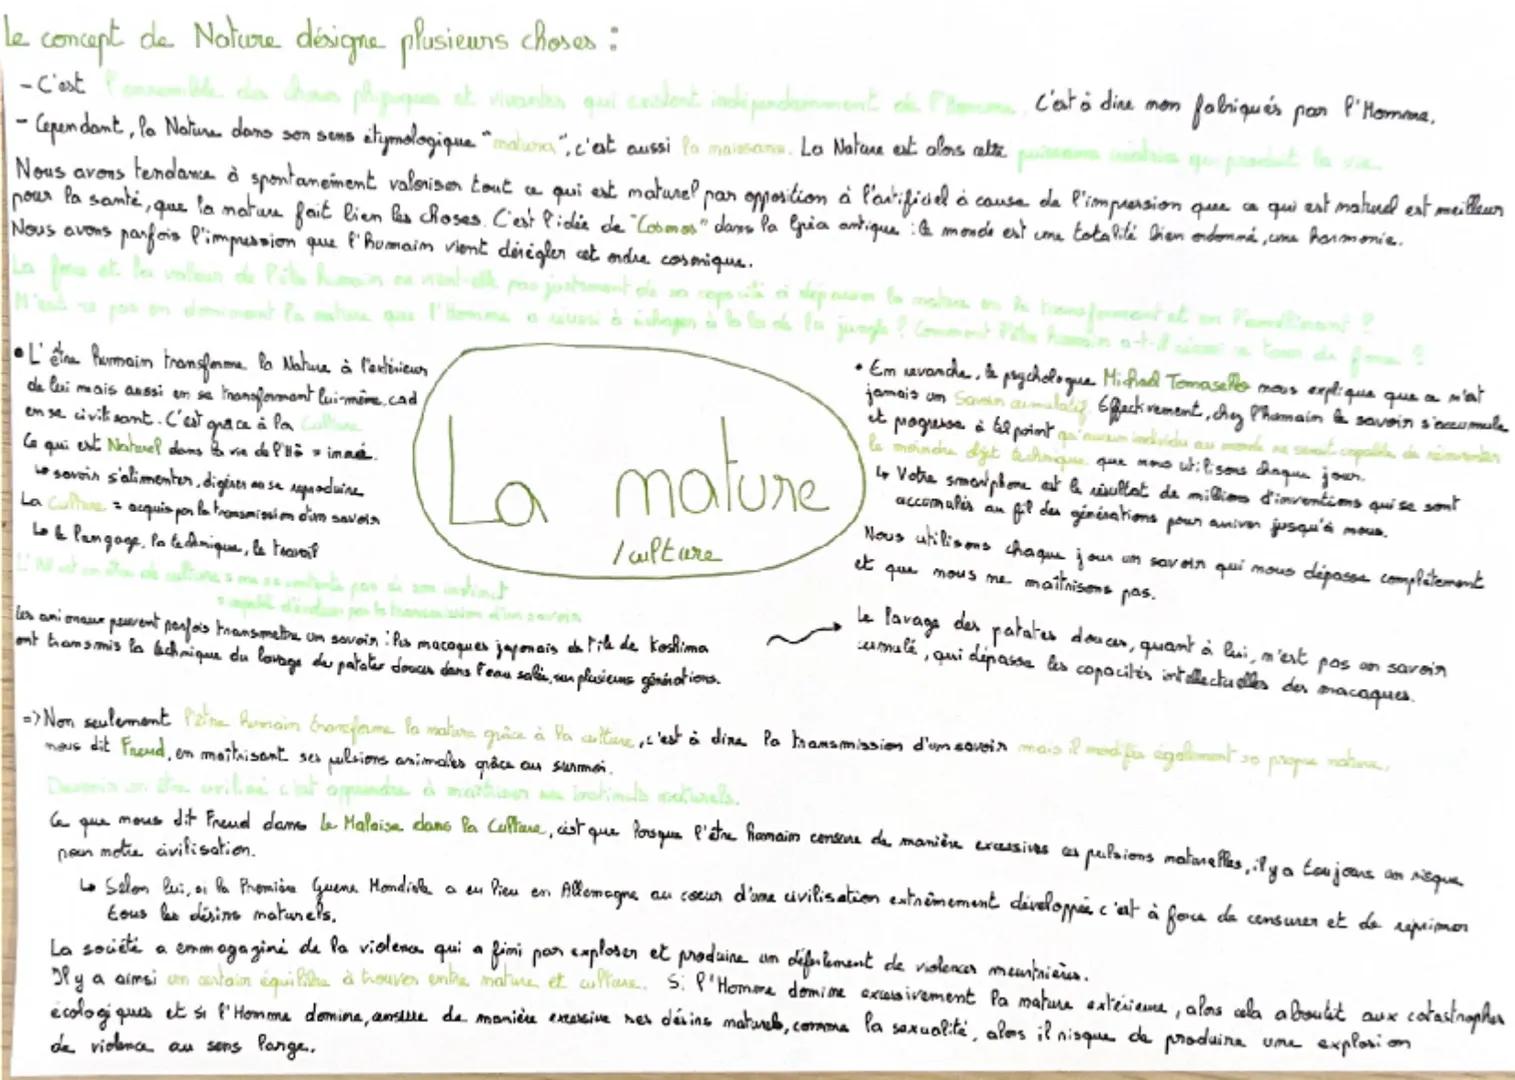 Le concept de Nature désigne plusieurs choses :
- C'est l'ensemble des choses physiques et vivantes qui existent indépendamment de l'Homme. C'est à dire non fabriqués par l'Homme.
- Cependant, la Nature dans son sens étymologique "natura", c'est aussi la naissance. La Nature est alors cette puissance créatrice qui produit la vie.
Nous avons tendance à spontanément valoriser tout ce qui est naturel par opposition à l'artificiel à cause de l'impression que ce qui est naturel est meilleur
pour la santé, que la nature fait bien les choses. C'est l'idée de "Cosmos" dans la Grèce antique : le monde est une totalité bien ordonné, une harmonie.
Nous avons parfois l'impression que l'humain vient dérégler cet ordre cosmique.
La force et la valeur de l'être humain ne vient-elle pas justement de sa capacité à dépasser la nature en la transformant et en l'améliorant ?
N'est-ce pas en dominant la nature que l'Homme a réussi à échapper à la loi de la jungle ? Comment l'être humain a-t-il réussi ce tour de force ?
• L'être humain transforme la Nature à l'extérieur
de lui mais aussi en se transformant lui-même, càd
en se civilisant. C'est grâce à la Culture
Ce qui est Naturel dans la vie de l'H = inné.
↳ savoir s'alimenter, digérer ou se reproduire
La Culture = acquis par la transmission d'un savoir
↳ le langage, la technique, le travail
L'H est un être de culture = ne se contente pas de son instinct
= capable d'évoluer par la transmission d'un savoir
Les animaux peuvent parfois transmettre un savoir : les macaques japonais de l'île de Koshima
ont transmis la technique du lavage des patates douces dans l'eau salée, sur plusieurs générations.
La nature
/culture
• En revanche, le psychologue Michael Tomasello nous explique que ce n'est
jamais un Savoir cumulatif. Effectivement, chez l'humain le savoir s'accumule
et progresse à tel point qu'aucun individu au monde ne serait capable de réinventer
le moindre objet technique que nous utilisons chaque jour.
↳ Votre smartphone est le résultat de millions d'inventions qui se sont
accumulés au fil des générations pour arriver jusqu'à nous.
Nous utilisons chaque jour un savoir qui nous dépasse complètement
et que nous ne maîtrisons pas.
Le lavage des patates douces, quant à lui, n'est pas un savoir
cumulé, qui dépasse les capacités intellectuelles des macaques.
=> Non seulement l'être humain transforme la nature grâce à la culture, c'est à dire la transmission d'un savoir mais il modifie également sa propre nature,
nous dit Freud, en maîtrisant ses pulsions animales grâce au surmoi.
Devenir un être civilisé c'est apprendre à maîtriser ses instincts naturels.
Ce que nous dit Freud dans Le Malaise dans la Culture, c'est que lorsque l'être humain censure de manière excessives ces pulsions naturelles, il y a toujours un risque
pour notre civilisation.
↳ Selon lui, si la Première Guerre Mondiale a eu lieu en Allemagne au coeur d'une civilisation extrêmement développée c'est à force de censurer et de réprimer
tous les désirs naturels.
La société a emmagaziné de la violence qui a fini par exploser et produire un déferlement de violences meurtrières.
Il y a ainsi un certain équilibre à trouver entre nature et culture. Si l'Homme domine excessivement la nature extérieure, alors cela aboutit aux catastrophes
écologiques et si l'Homme domine, censure de manière excessive ses désirs naturels, comme la sexualité, alors il risque de produire une explosion
de violence au sens large.